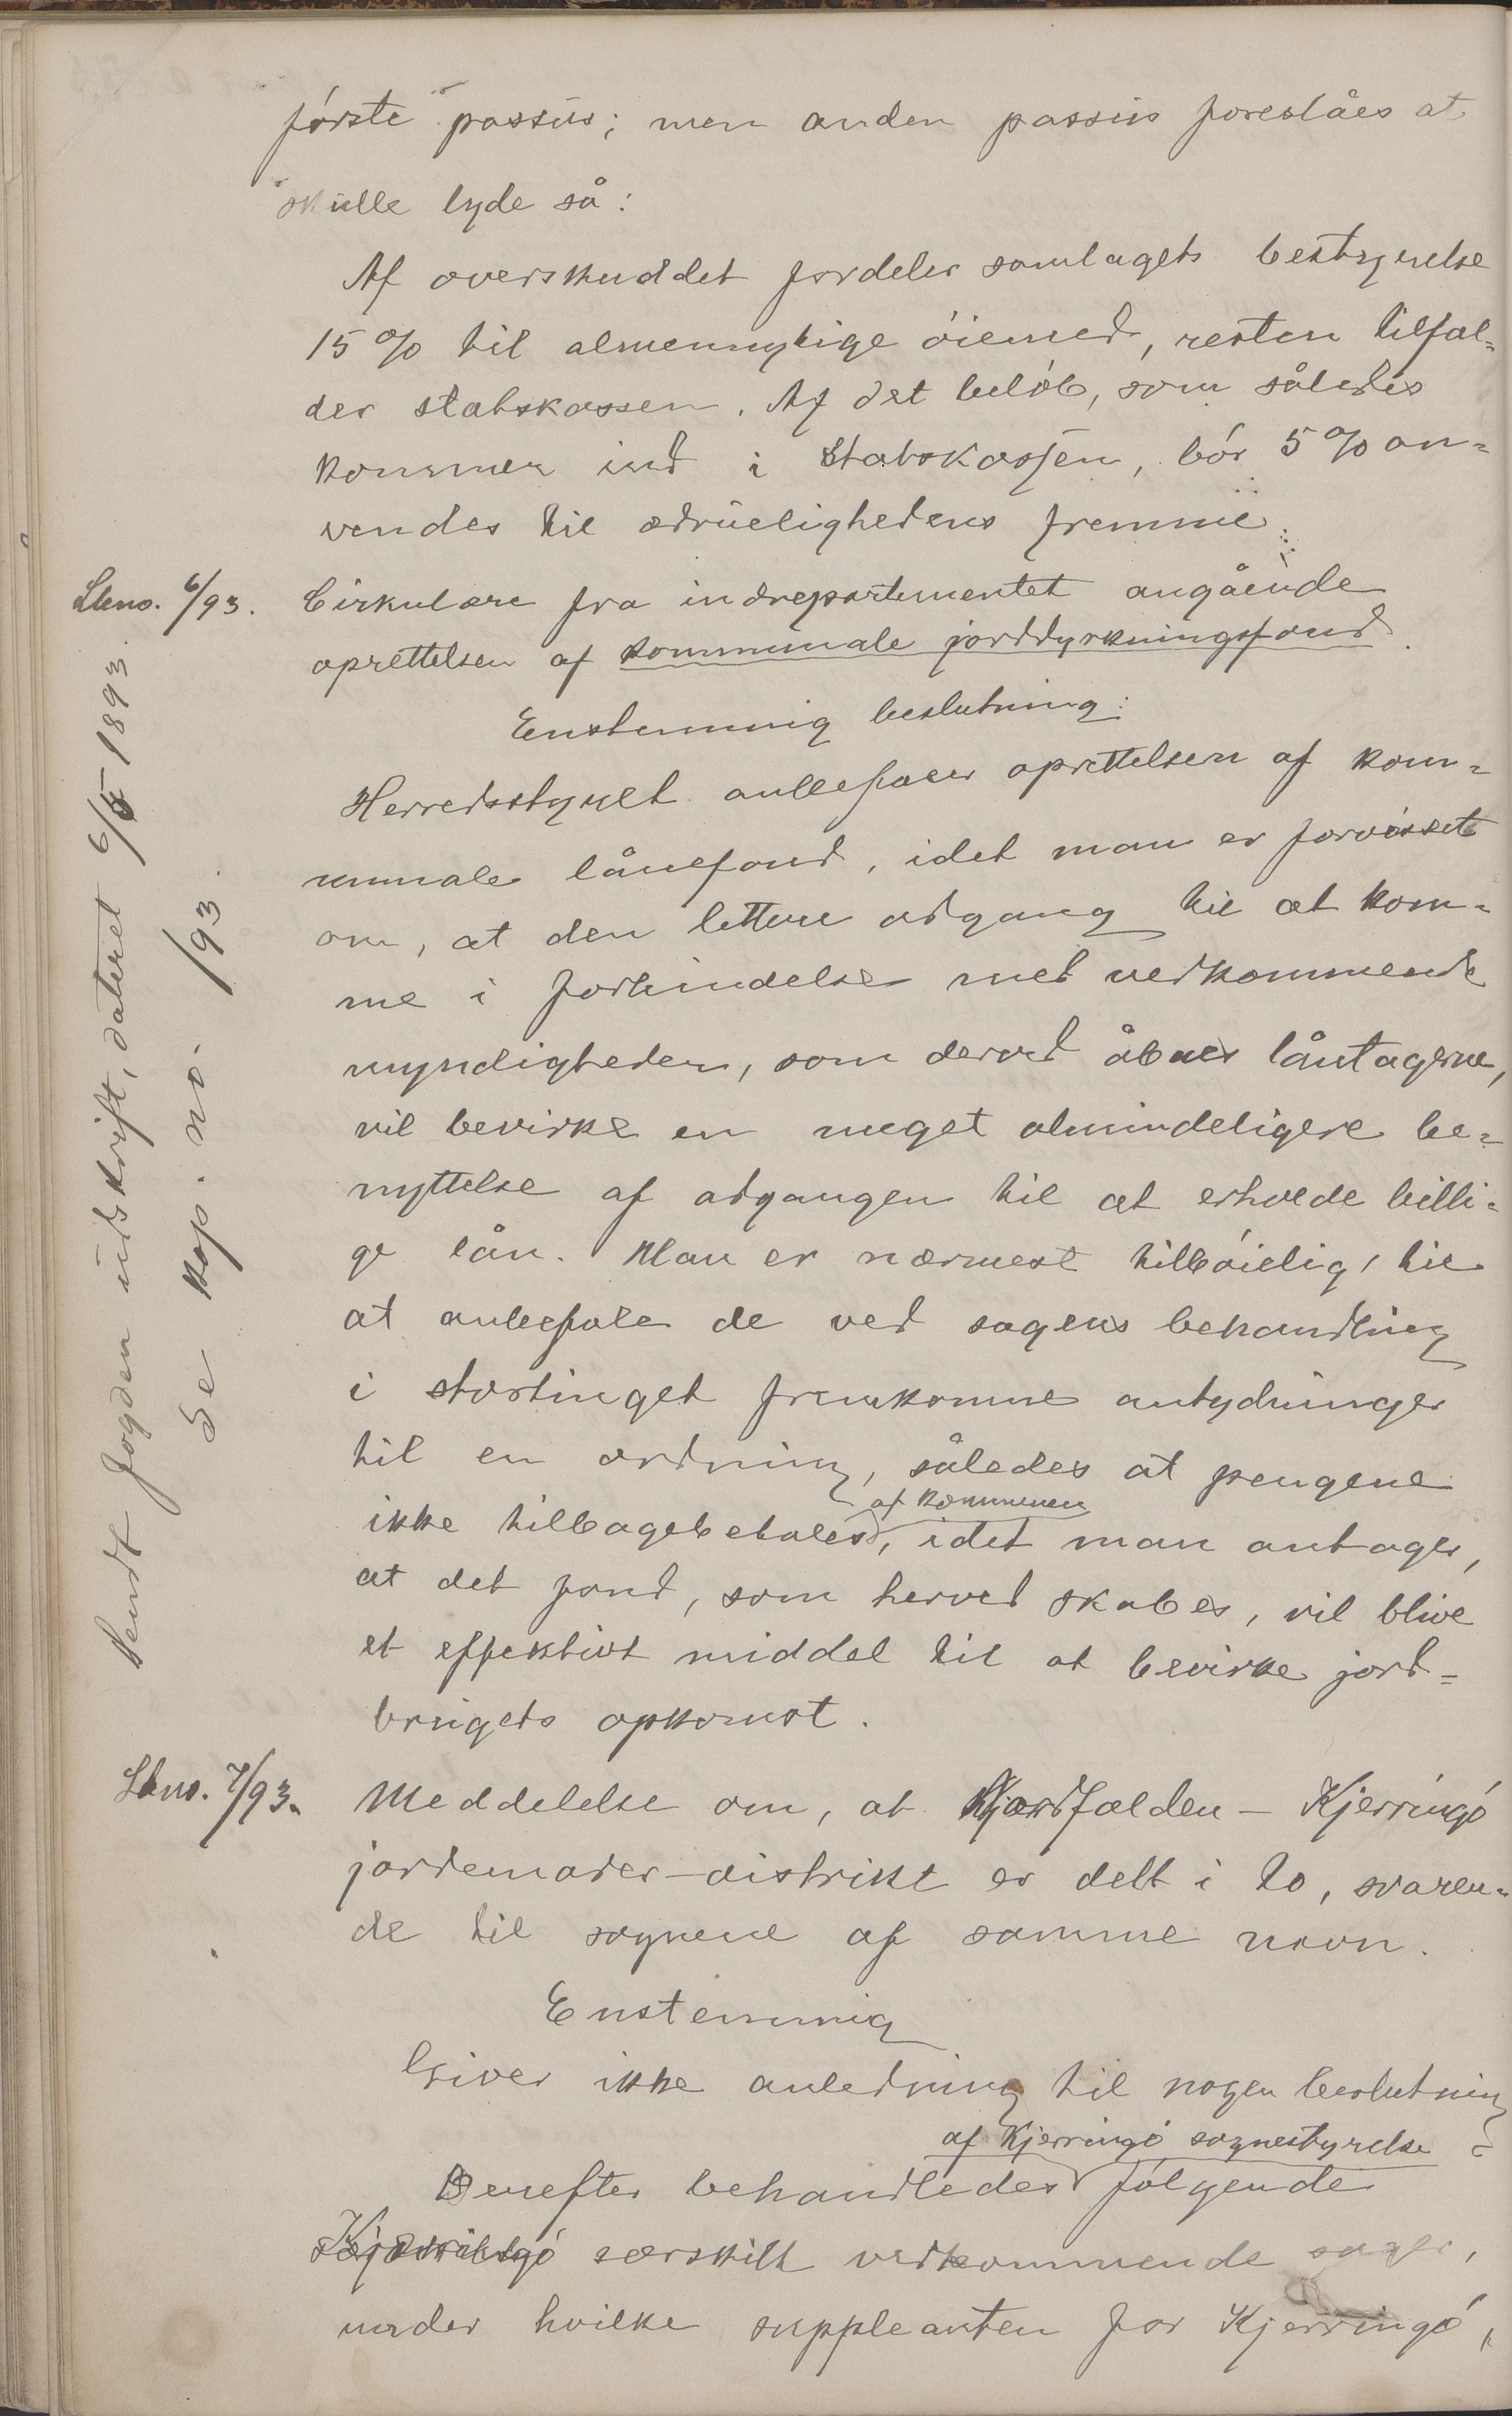 første passus; men anden passus foreslåes at
skulle lyde så:
Af overskuddet fordeler samlagets bestyrelse
15 % til almennyttige øiemed, resten tilfal-
der statskassen. Af det beløb, som således
kommer ind i Statskassen, bør 5 % an-
vendes til ædrueligheden fremme.
Lbno. 6/93. Cirkulære fra indrepartementet angående
oprettelsen af kommunale jorddyrkningsfond.
Enstemmig beslutning:
Herredsstyret anbefaler oprettelsen af kom-
munale lånefond, idet man er forvisset
om, at den lettere adgang til at kom-
me i forbindelse med vedkommende
myndigheder, som derved åbnes låntagerne,
vil bevirke en meget almindeligere be-
nyttelse af adgangen til at erholde billi-
ge lån. Man er nærmest tilbøielig til
at anbefale de ved sagens behandling
i stortinget fremkomne antydninger
til en ordning, således at pengene
af kommunen
ikke tilbagebetales, idet man antager,
at det fond, som herved skabes, vil blive
et effektivt middel til at bevirke jord-
brugets opkomst.
Sendt fogden udskrift, dateret 6/5 1893.
Se kop. no. /93.
Lbno. 7/93. Meddelelse om, at Nordfolden - Kjerringø
jordemoder-distrikt er delt i to, svaren-
de til sognene af samme navn.
Enstemmig
Giver ikke anledning til nogen beslutning
af Kjerringø sognestyrelse
Derefter behandledes følgende
Kjerringø særskilt vedkommende sager,
under hvilke suppleanten for Kjerringø,